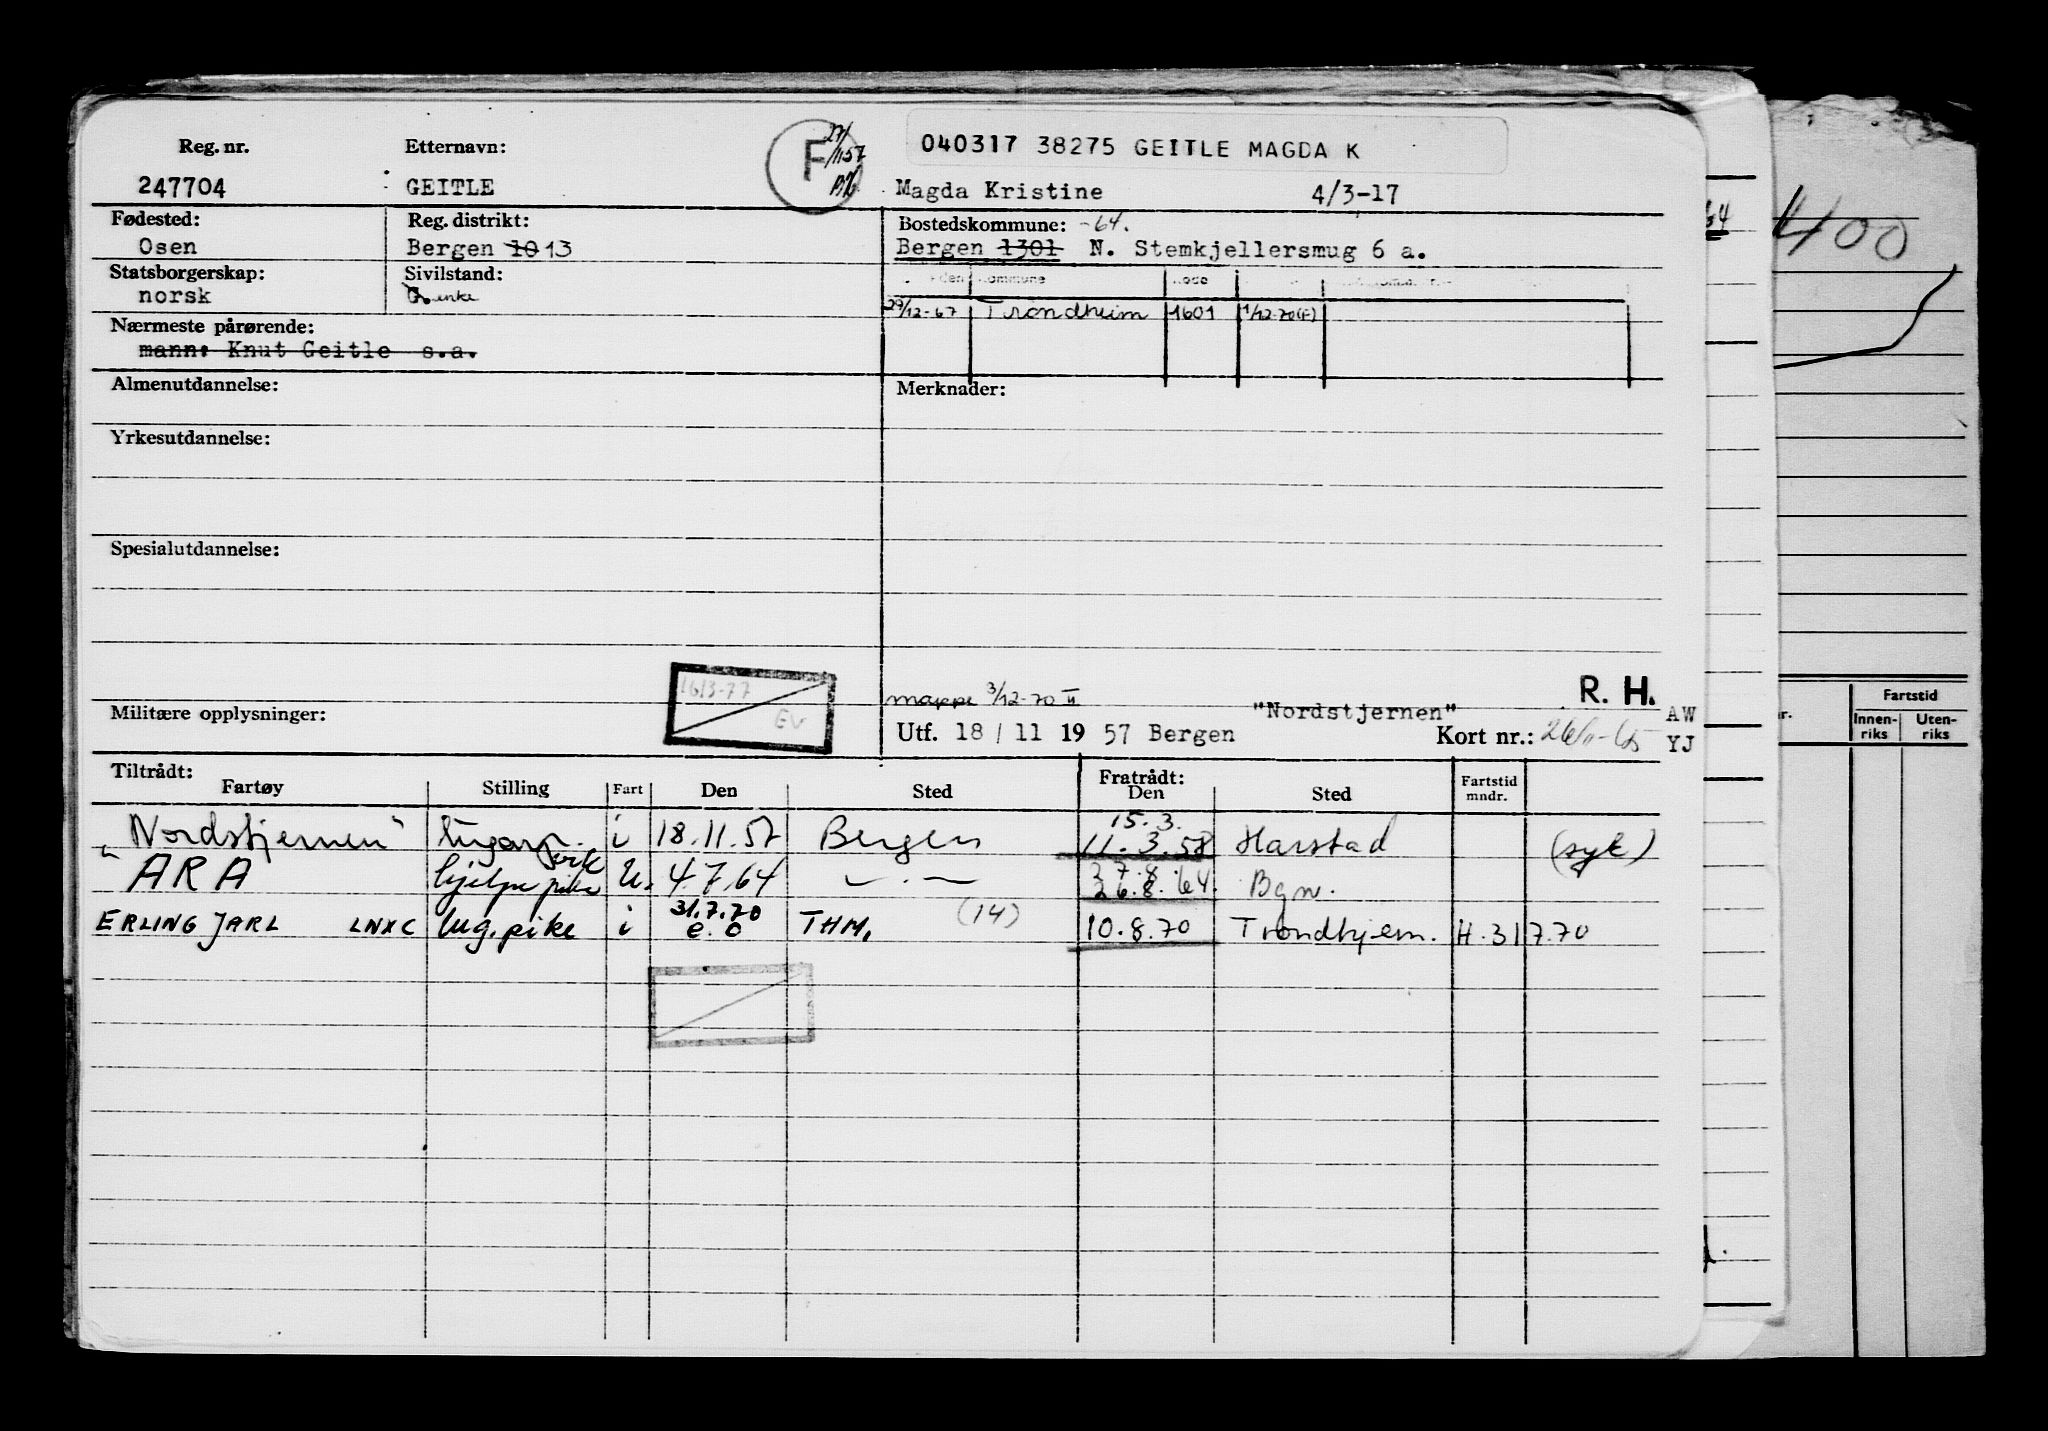 040317 38275 GEITLE MAGDA K
Reg. nr. Etternavn: F 27/11 57
247704 GEITLE Magda Kristine 4/3-17
Fødested: Reg. distrikt: Bostedskommune: -64.
Osen Bergen 10 13 Bergen 1301 N. Stemkjellersmug 6 a.
Statsborgerskap: Sivilstand:
norsk G. enke
29/12-67 Trondheim 1601 1/12-70(F)
Nærmeste pårørende:
mann: Knut Geitle s.a.
Almenutdannelse: Merknader:
Yrkesutdannelse:
Spesialutdannelse:
1613-77
EV
mappe 3/12-70 R. H.
Militære opplysninger: "Nordstjernen" AW
Utf. 18 / 11 19 57 Bergen Kort nr.: YJ
Tiltrådt: Fratrådt:
Fartøy Stilling Fart Den Sted Den Sted Fartstid mndr.
"Nordstjernen" lugarp. i 18.11.57 Bergen 15.3. 11.3.58 Harstad (syk)
ARA hjelpepike U. 4.7.64 — . — 27.8. 26.8.64. Bgn.
ERLING JARL LNXC lug.pike i 31.7.70 e.o THM. (14) 10.8.70 Trondhjem. H.31 7.70
64
400
Fartstid
Innen-riks Uten-riks